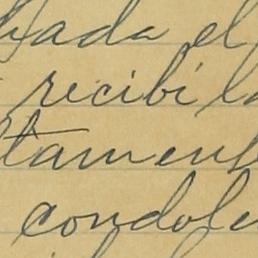 hada el
recibi la
tamente
condole